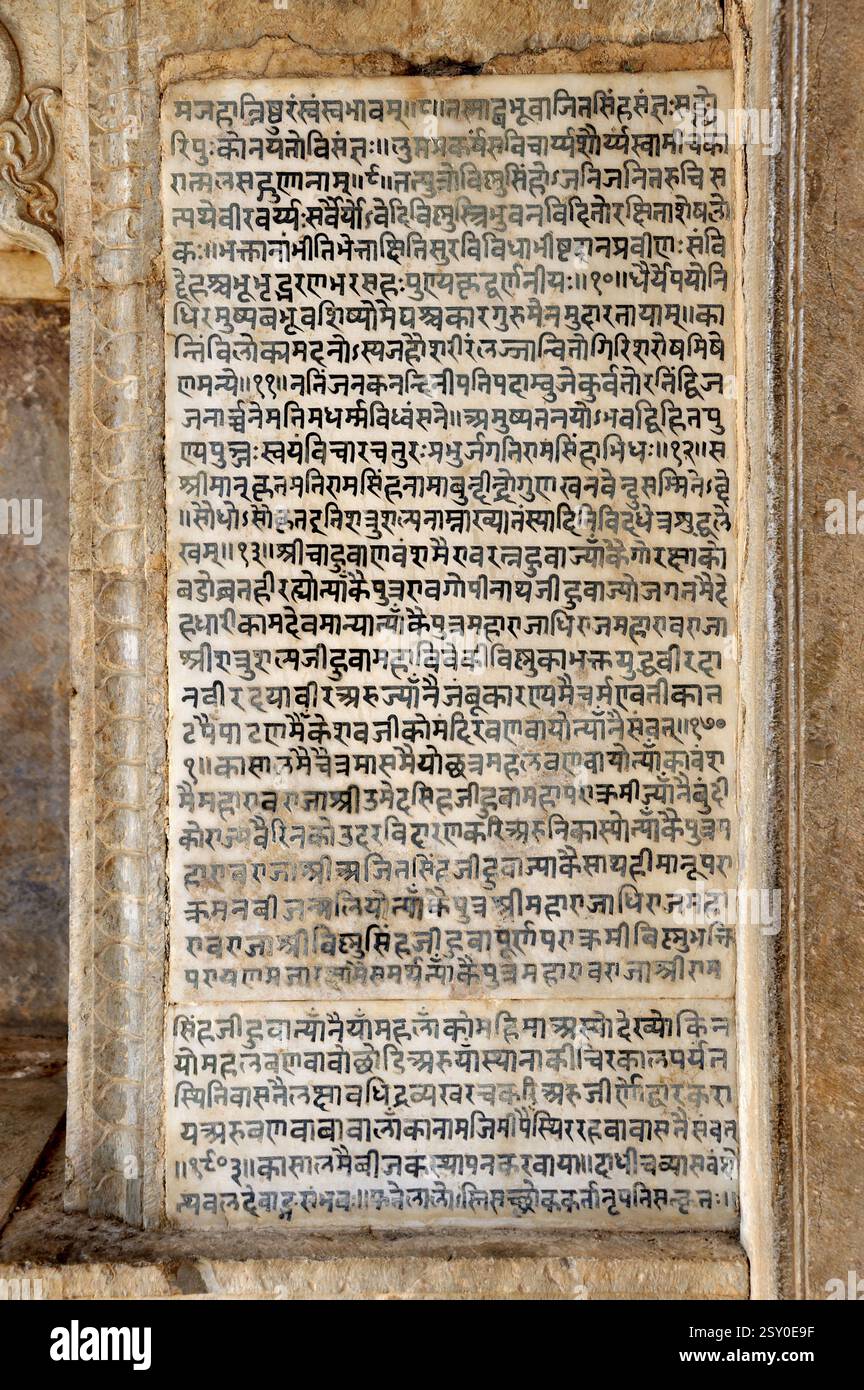 मजहान्निष्ठुरंस्वंस्वभावम्॥८॥तस्माद्बभूवाजितसिंहसंज्ञः
रिपुःकोनयतोविसंज्ञः॥
रात्मलसद्गुणानाम्॥९॥तत्पुत्रोविष्णुसिंहोऽजनिजनितरुचिस
त्पथेवीरवर्य्यःसर्वैर्योऽवेदिविष्णुस्त्रिभुवनविदितोरक्षिताशेषलो
कः॥भक्तानांभीतिभेत्ताक्षितिसुरविविधाभीष्टदानप्रवीणःसंवि
पुण्यकृद्वर्णनीयः॥१०॥धैर्येपयोनि
धिरमुष्यबभूवशिष्योमेघश्चकारगुरुमेनमुदारतायाम्॥का
न्तिंविलोक्यमदनोऽस्यजहौशरीरंलज्जान्वितोगिरिशरोषमिषे
णमन्ये॥११॥नतिंजनकनन्दिनीपतिपदाम्बुजेकुर्वतोरतिंद्विज
जनार्च्चनेमतिमधर्म्मविध्वंसने॥अमुष्यतनयोऽभवद्विहितपु
ण्यपुञ्जःस्वयंविचारचतुरःप्रभुर्जगतिरामसिंहाभिधः॥१२॥स
श्रीमान्कृतमतिरामसिंहनामाबुन्दीन्द्रोगुणखनवेन्दुसम्मितेऽब्दे
॥सौधोऽसौकृतदृतिशत्रुशल्यनाम्नाख्यातंस्यादितिविदधेत्रशुद्धले
खम्॥१३॥श्रीचाहुवाणवंशमैरावरत्नहुवाज्याँकैगोरक्षाको
बडोब्रतहीरह्योत्याँकैपुत्ररावगोपीनाथजीहुवाज्योजगतमैदे
हधारीकामदेवमान्यात्याँकैपुत्रमहाराजाधिराजमहारावराजा
श्रीशत्रुशल्यजीहुवामहाविवेकीविष्णुकाभक्तयुद्धवीरदा
नवीरदयावीरअरुज्याँनैजंबूकारण्यमैचर्मण्वतीकात
टपैपाटणमैँकेशवजीकोमंदिरबणवायोत्याँनैसंवत्॥१७०
१॥कासालमैचैत्रमासमैयोछत्रमहलबणवायोत्याँकावंश
मैमहारावराजाश्रीउमेदसिंहजीहुवामहापराक्रमीज्याँनैबुंदी
कोराज्यवैरिनकोउदरविदारणकरिअरुनिकास्योत्याँकैपुत्रम
हारावराजाश्रीअजितसिंहजीहुवाज्याकैसाथहीमानूपरा
क्रमनबीजन्मलियोत्याँकैपुत्रश्रीमहाराजाधिराजमहा
रावराजाश्रीविष्णुसिंहजीहुवापूर्णपराक्रमीविष्णुभक्ति
परायणप्रजा समर्थत्याँकैपुत्रमहारावराजाश्रीराम
सिंहजीहुवात्याँनैयाँमहलाँकोमहिमाअस्योदेख्योकिन
योमहलबणवावोछोडिअरुयाँस्थानाकीचिरकालपर्यंत
स्थितिवासतैलक्षावधिद्रव्यखरचकरिअरुजीर्णोद्धारकरा
यअरुबणवाबावालाँकानामजिमीपैस्थिररहवावासतैसंवत्
॥१९०३॥कासालमैबीजकस्थापनकरवाया॥दाधीचव्यासवंशो
त्थबलदेवाङ्गसंभवः॥